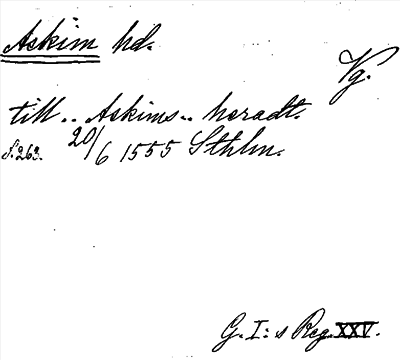 Askim hd.
Vg.
till .. Askims .. heradt.
s. 263. 20/6 1555 Sthlm.
G. I:s Reg. XXV.